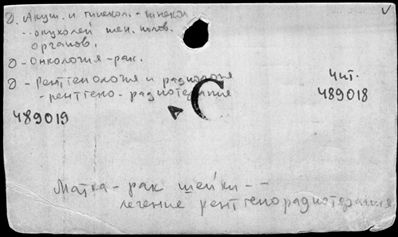 д. Акуш. и гинекол. - гинекол
.. опухолей жен. полов.
органов.
д - Онкология - рак.
д - Рентгенология и радиология
- рентгено - радиотерапия
Чит.
489018
489019
С
Матка - рак шейки - -
лечение рентгенорадиотерапия